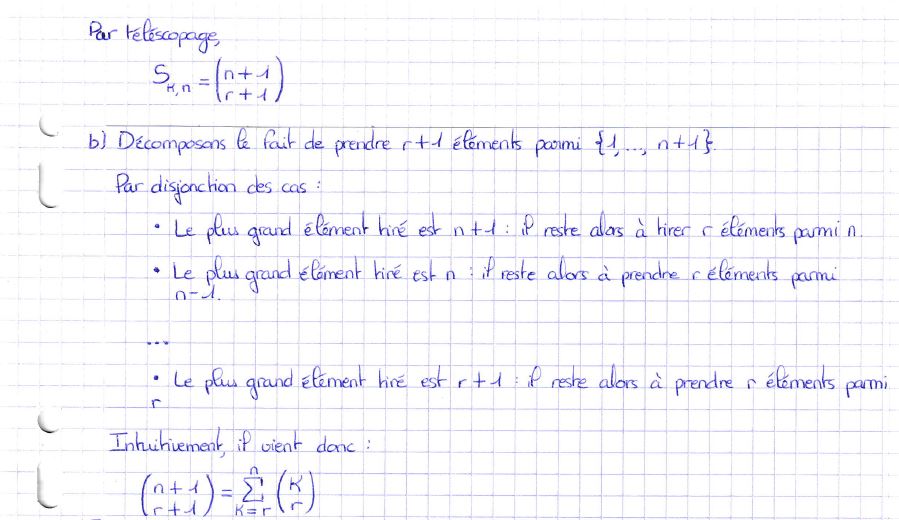 Par téléscopage,
S_{K,n} = \binom{n+1}{r+1}
b) Décomposons le fait de prendre r+1 éléments parmi {1, ..., n+1}.
Par disjonction des cas :
• Le plus grand élément tiré est n+1 : il reste alors à tirer r éléments parmi n.
• Le plus grand élément tiré est n : il reste alors à prendre r éléments parmi
n-1.
...
• Le plus grand élément tiré est r+1 : il reste alors à prendre r éléments parmi
r
Intuitivement, il vient donc :
\binom{n+1}{r+1} = \sum_{K=r}^{n} \binom{K}{r}